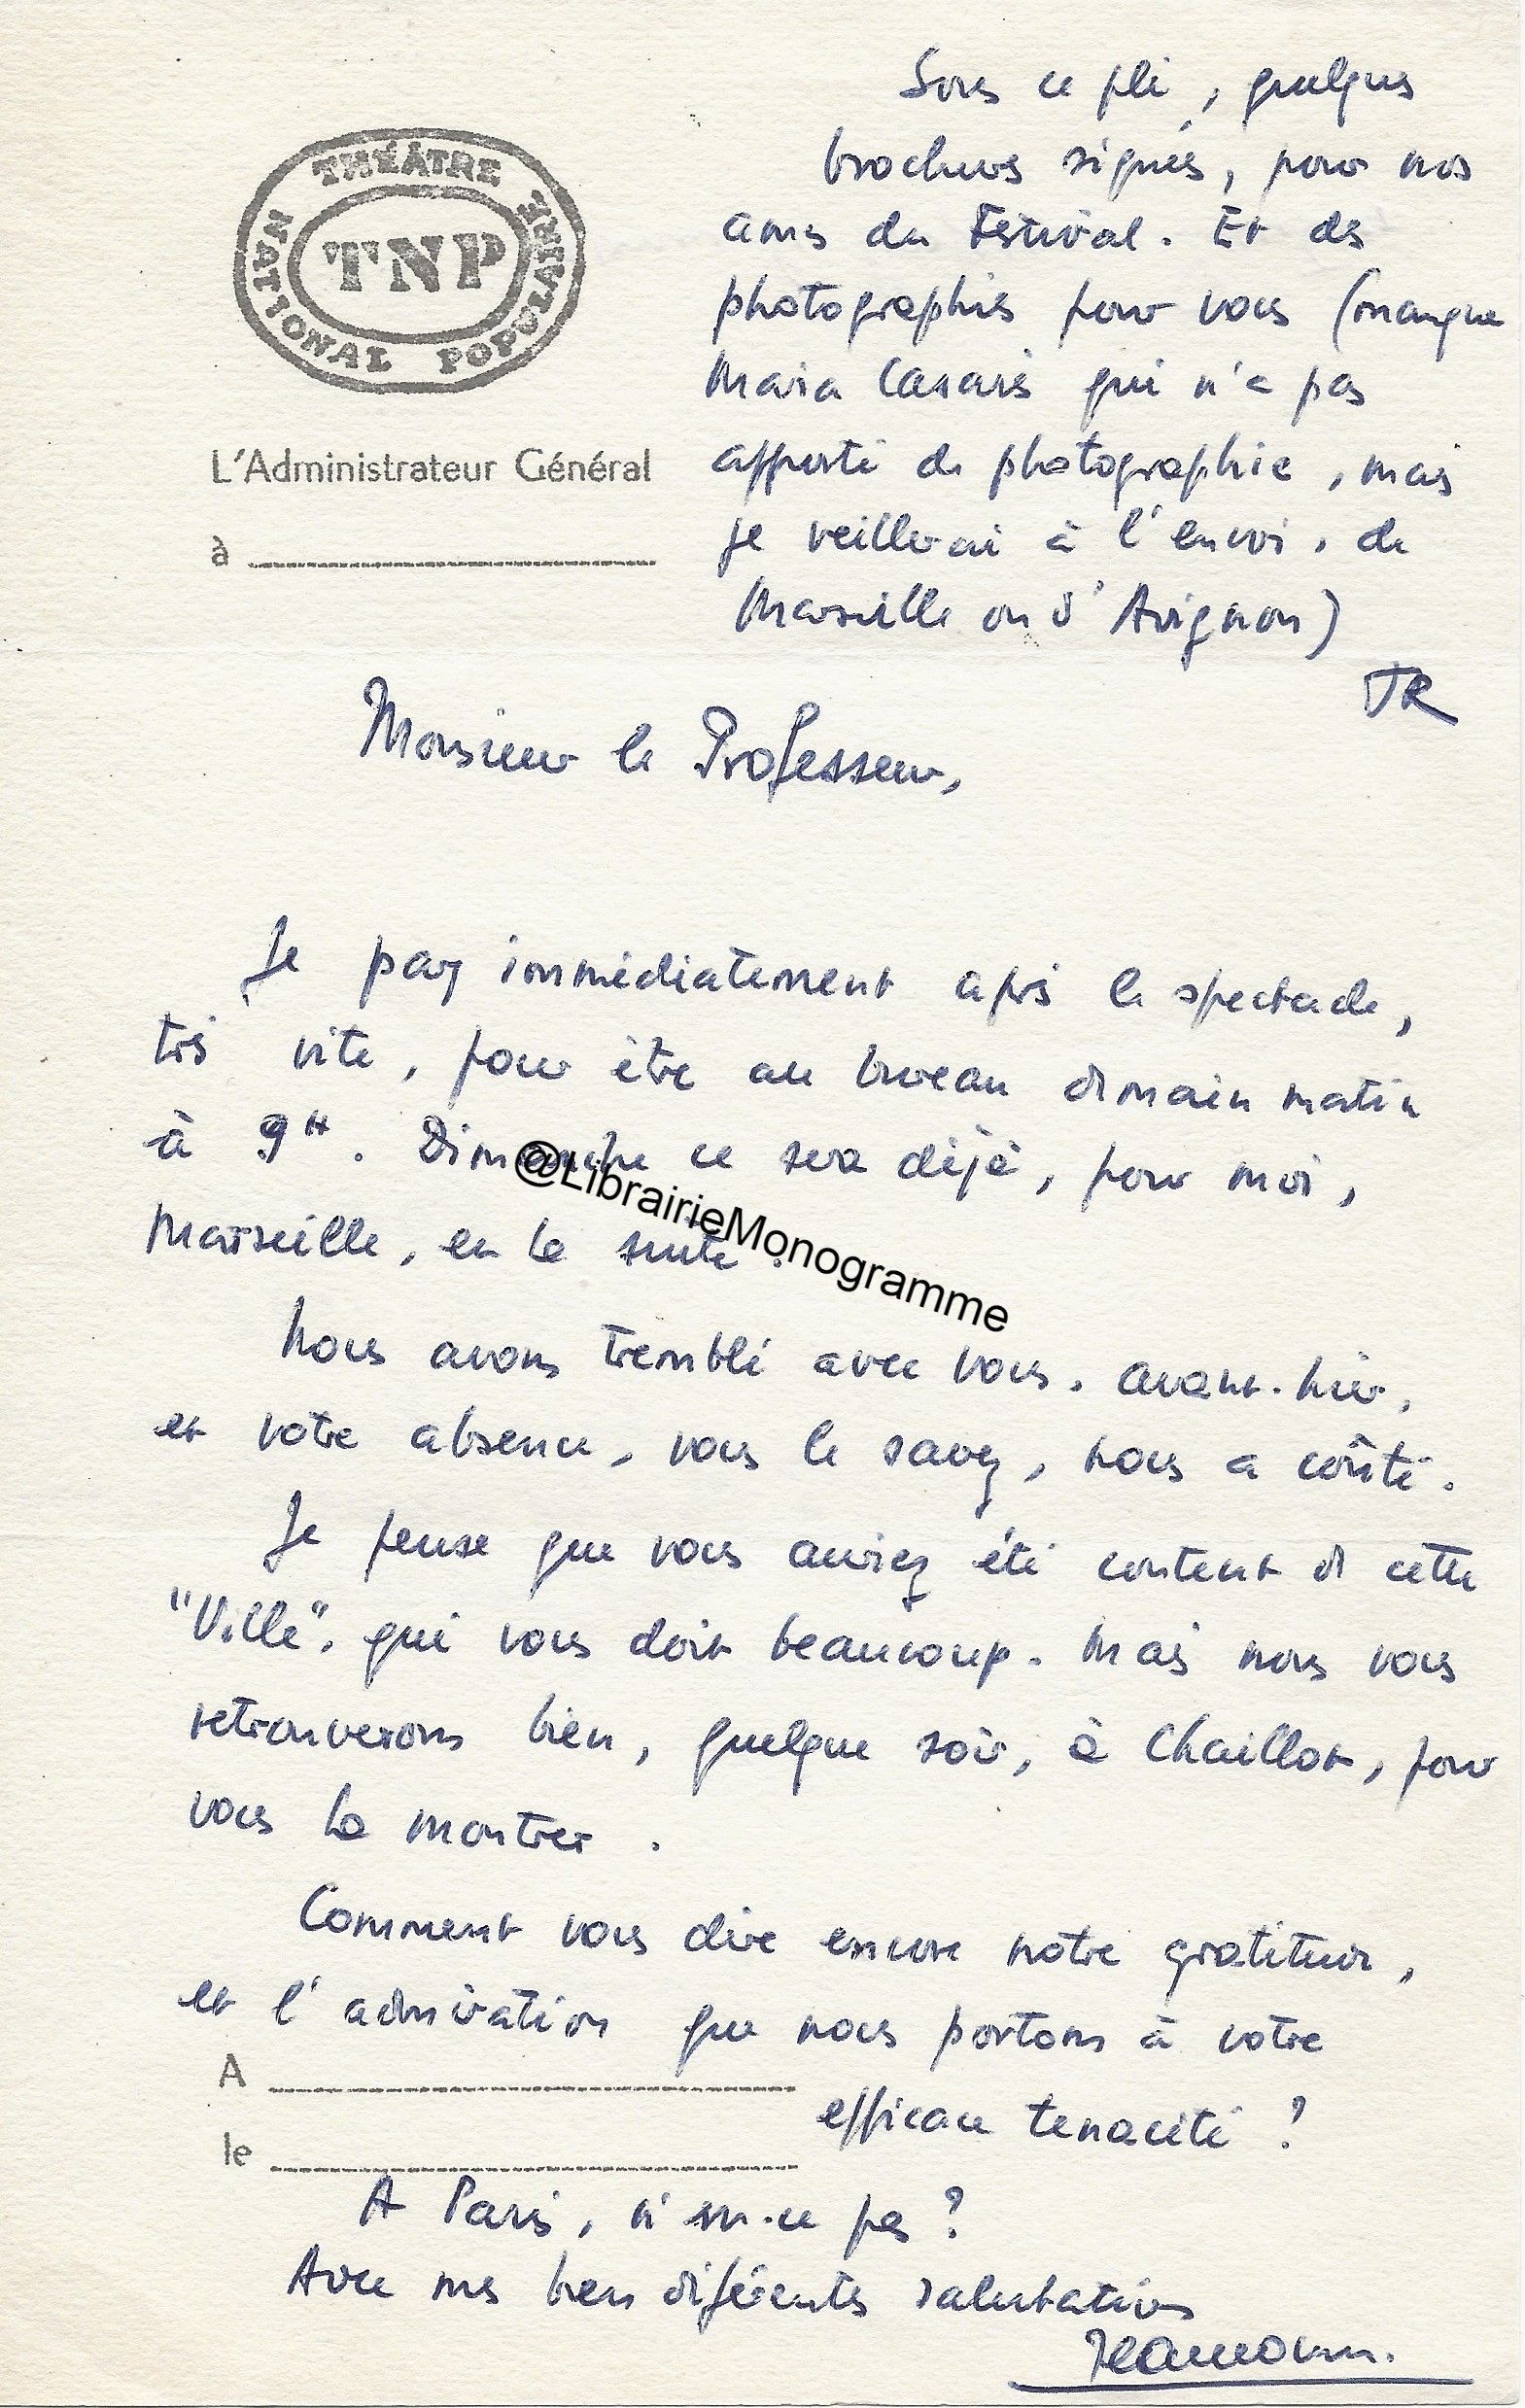 THÉÂTRE
NATIONAL POPULAIRE
TNP
L'Administrateur Général
à
Sous ce pli, quelques
brochures signées, pour nos
amis du Festival. Et des
photographies pour vous (manque
Maria Casarès qui n'a pas
apporté de photographie, mais
je veillerai à l'envoi, de
Marseille ou d'Avignon)
JR
Monsieur le Professeur,
Je pars immédiatement après le spectacle,
très vite, pour être au bureau demain matin
à 9H. Dimanche ce sera déjà, pour moi,
Marseille, en la suite.
@LibrairieMonogramme
Nous avons tremblé avec vous, avant-hier,
et votre absence, vous le savez, nous a coûté.
Je pense que vous auriez été content de cette
"Ville", qui vous doit beaucoup. Mais nous vous
retrouverons bien, quelque soir, à Chaillot, pour
vous la montrer.
Comment vous dire encore notre gratitude,
et l'admiration que nous portons à votre
A
efficace tenacité ?
le
A Paris, n'est-ce pas ?
Avec mes bien déférentes salutations